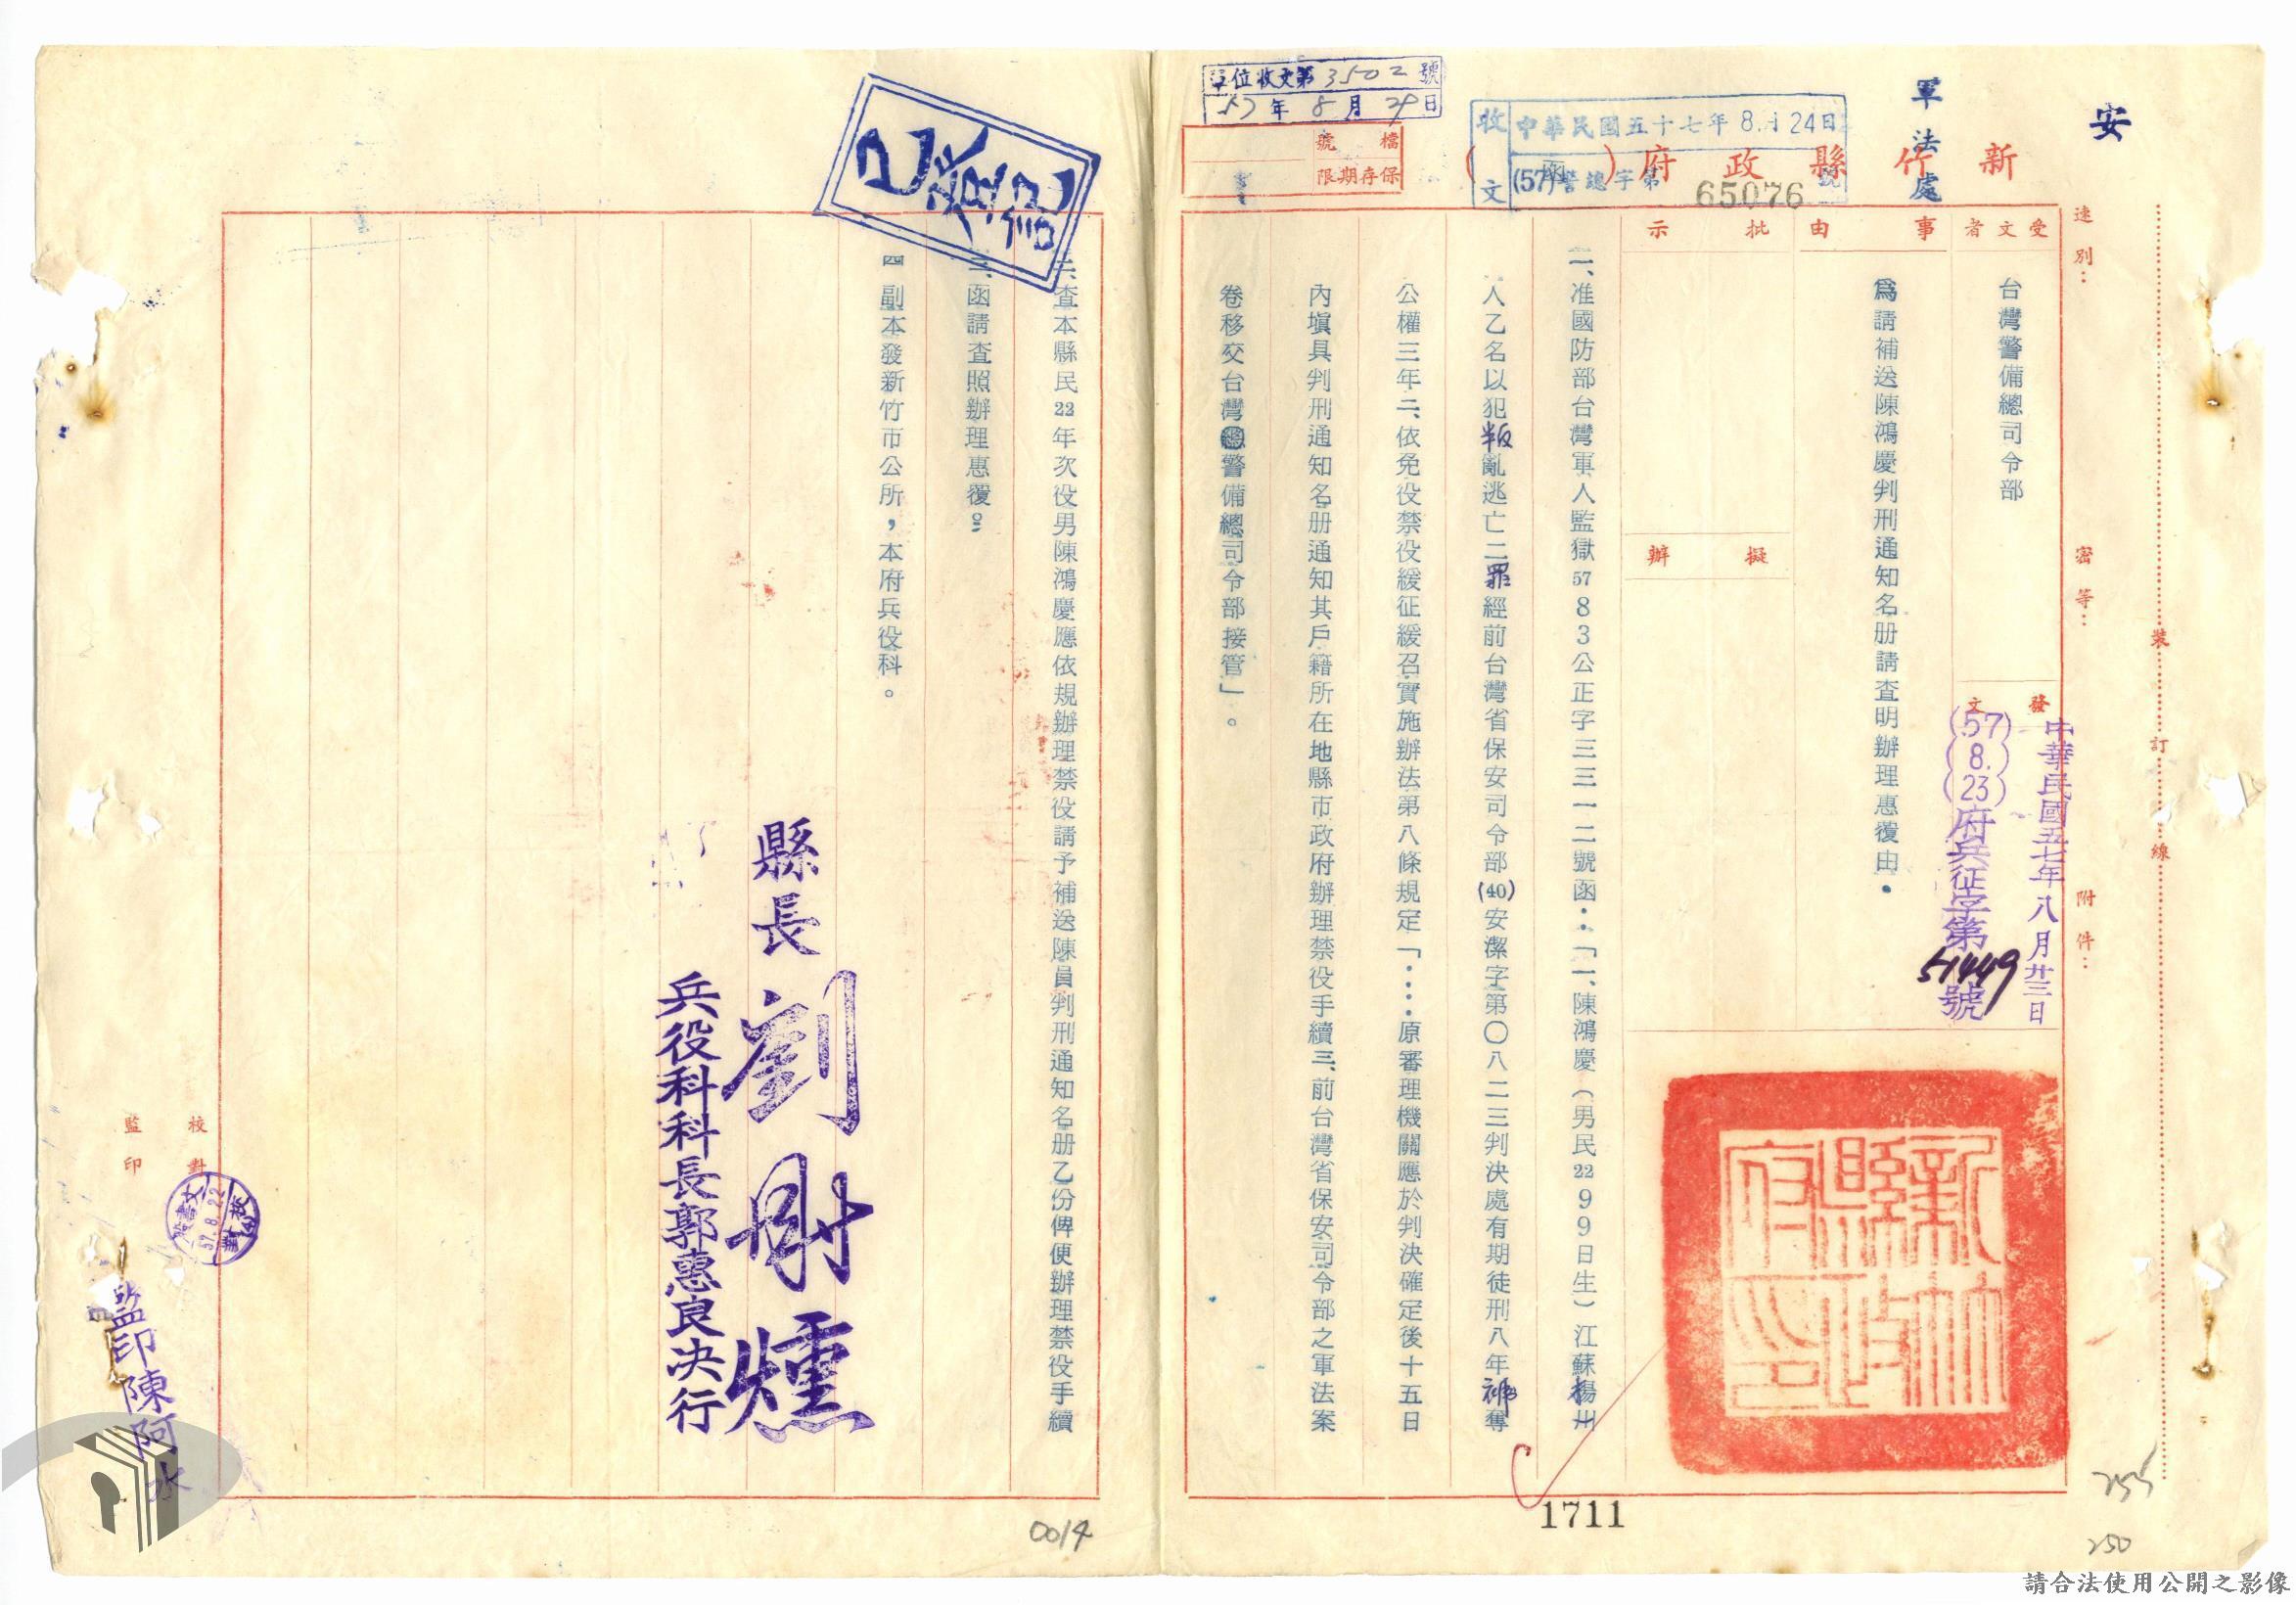 安
軍法處
新竹縣政府(函)
收文
中華民國五十七年8月24日
(57)警總字第65076號
單位收文第3502號
57年8月29日
檔號
保存期限
速別:
密等:
附件:
裝訂線
受文者
台灣警備總司令部
發文
中華民國五十七年八月廿三日
(57)(8.)(23)府兵征字第51449號
事由
為請補送陳鴻慶判刑通知名册請查明辦理惠覆由.
批示
擬辦
一、准國防部台灣軍人監獄5783公正字三三一二號函:「一、陳鴻慶(男民2299日生)江蘇揚州
人乙名以犯叛亂逃亡二罪經前台灣省保安司令部(40)安潔字第〇八二三判決處有期徒刑八年褫奪
公權三年二、依免役禁役緩征緩召實施辦法第八條規定「‥‥原審理機關應於判決確定後十五日
內塡具判刑通知名册通知其戶籍所在地縣市政府辦理禁役手續三、前台灣省保安司令部之軍法案
卷移交台灣警備總司令部接管」。
新竹縣政府印
1711
255
250
二、查本縣民22年次役男陳鴻慶應依規辦理禁役請予補送陳員判刑通知名册乙份俾便辦理禁役手續
三、函請查照辦理惠覆。
四 副本發新竹市公所,本府兵役科。
已登記
縣長劉榭燻
兵役科科長郭惠良決行
校對
監印
57.8.22
監印陳阿水
0014
請合法使用公開之影像